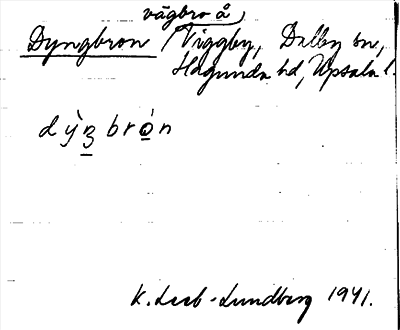 vägbro å
Dyngbron / Viggby, Dalby sn,
Hagunda hd, Upsala l.
dỳn̲ brò̲n
K. Leeb-Lundberg 1941.